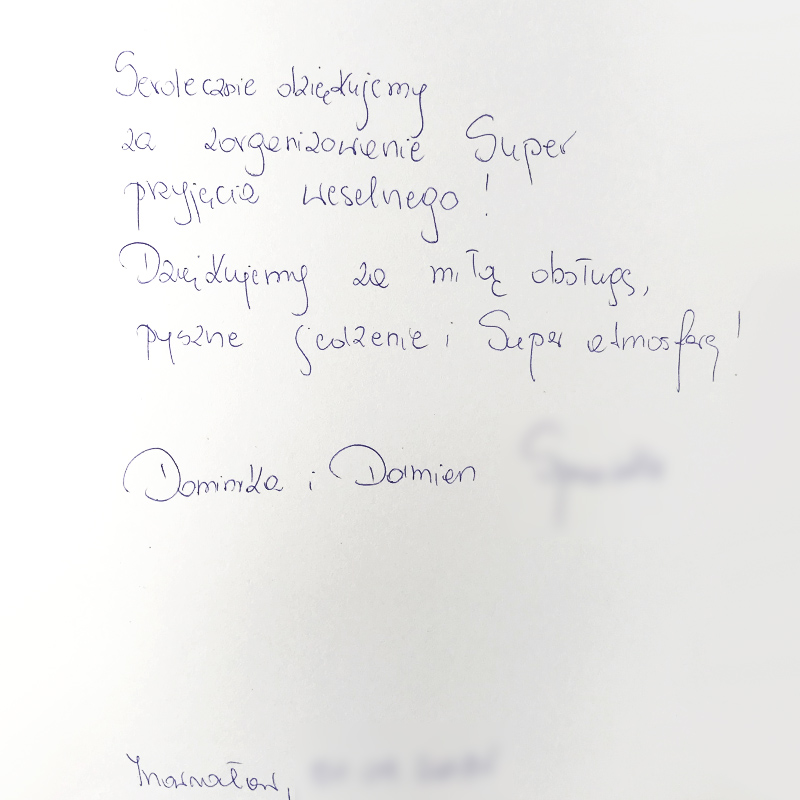 Serdecznie dziękujemy
za zorganizowanie Super
przyjęcia weselnego!
Dziękujemy za miłą obsługę,
pyszne jedzenie i Super atmosferę!
Dominika i Damian
Inowrocław,